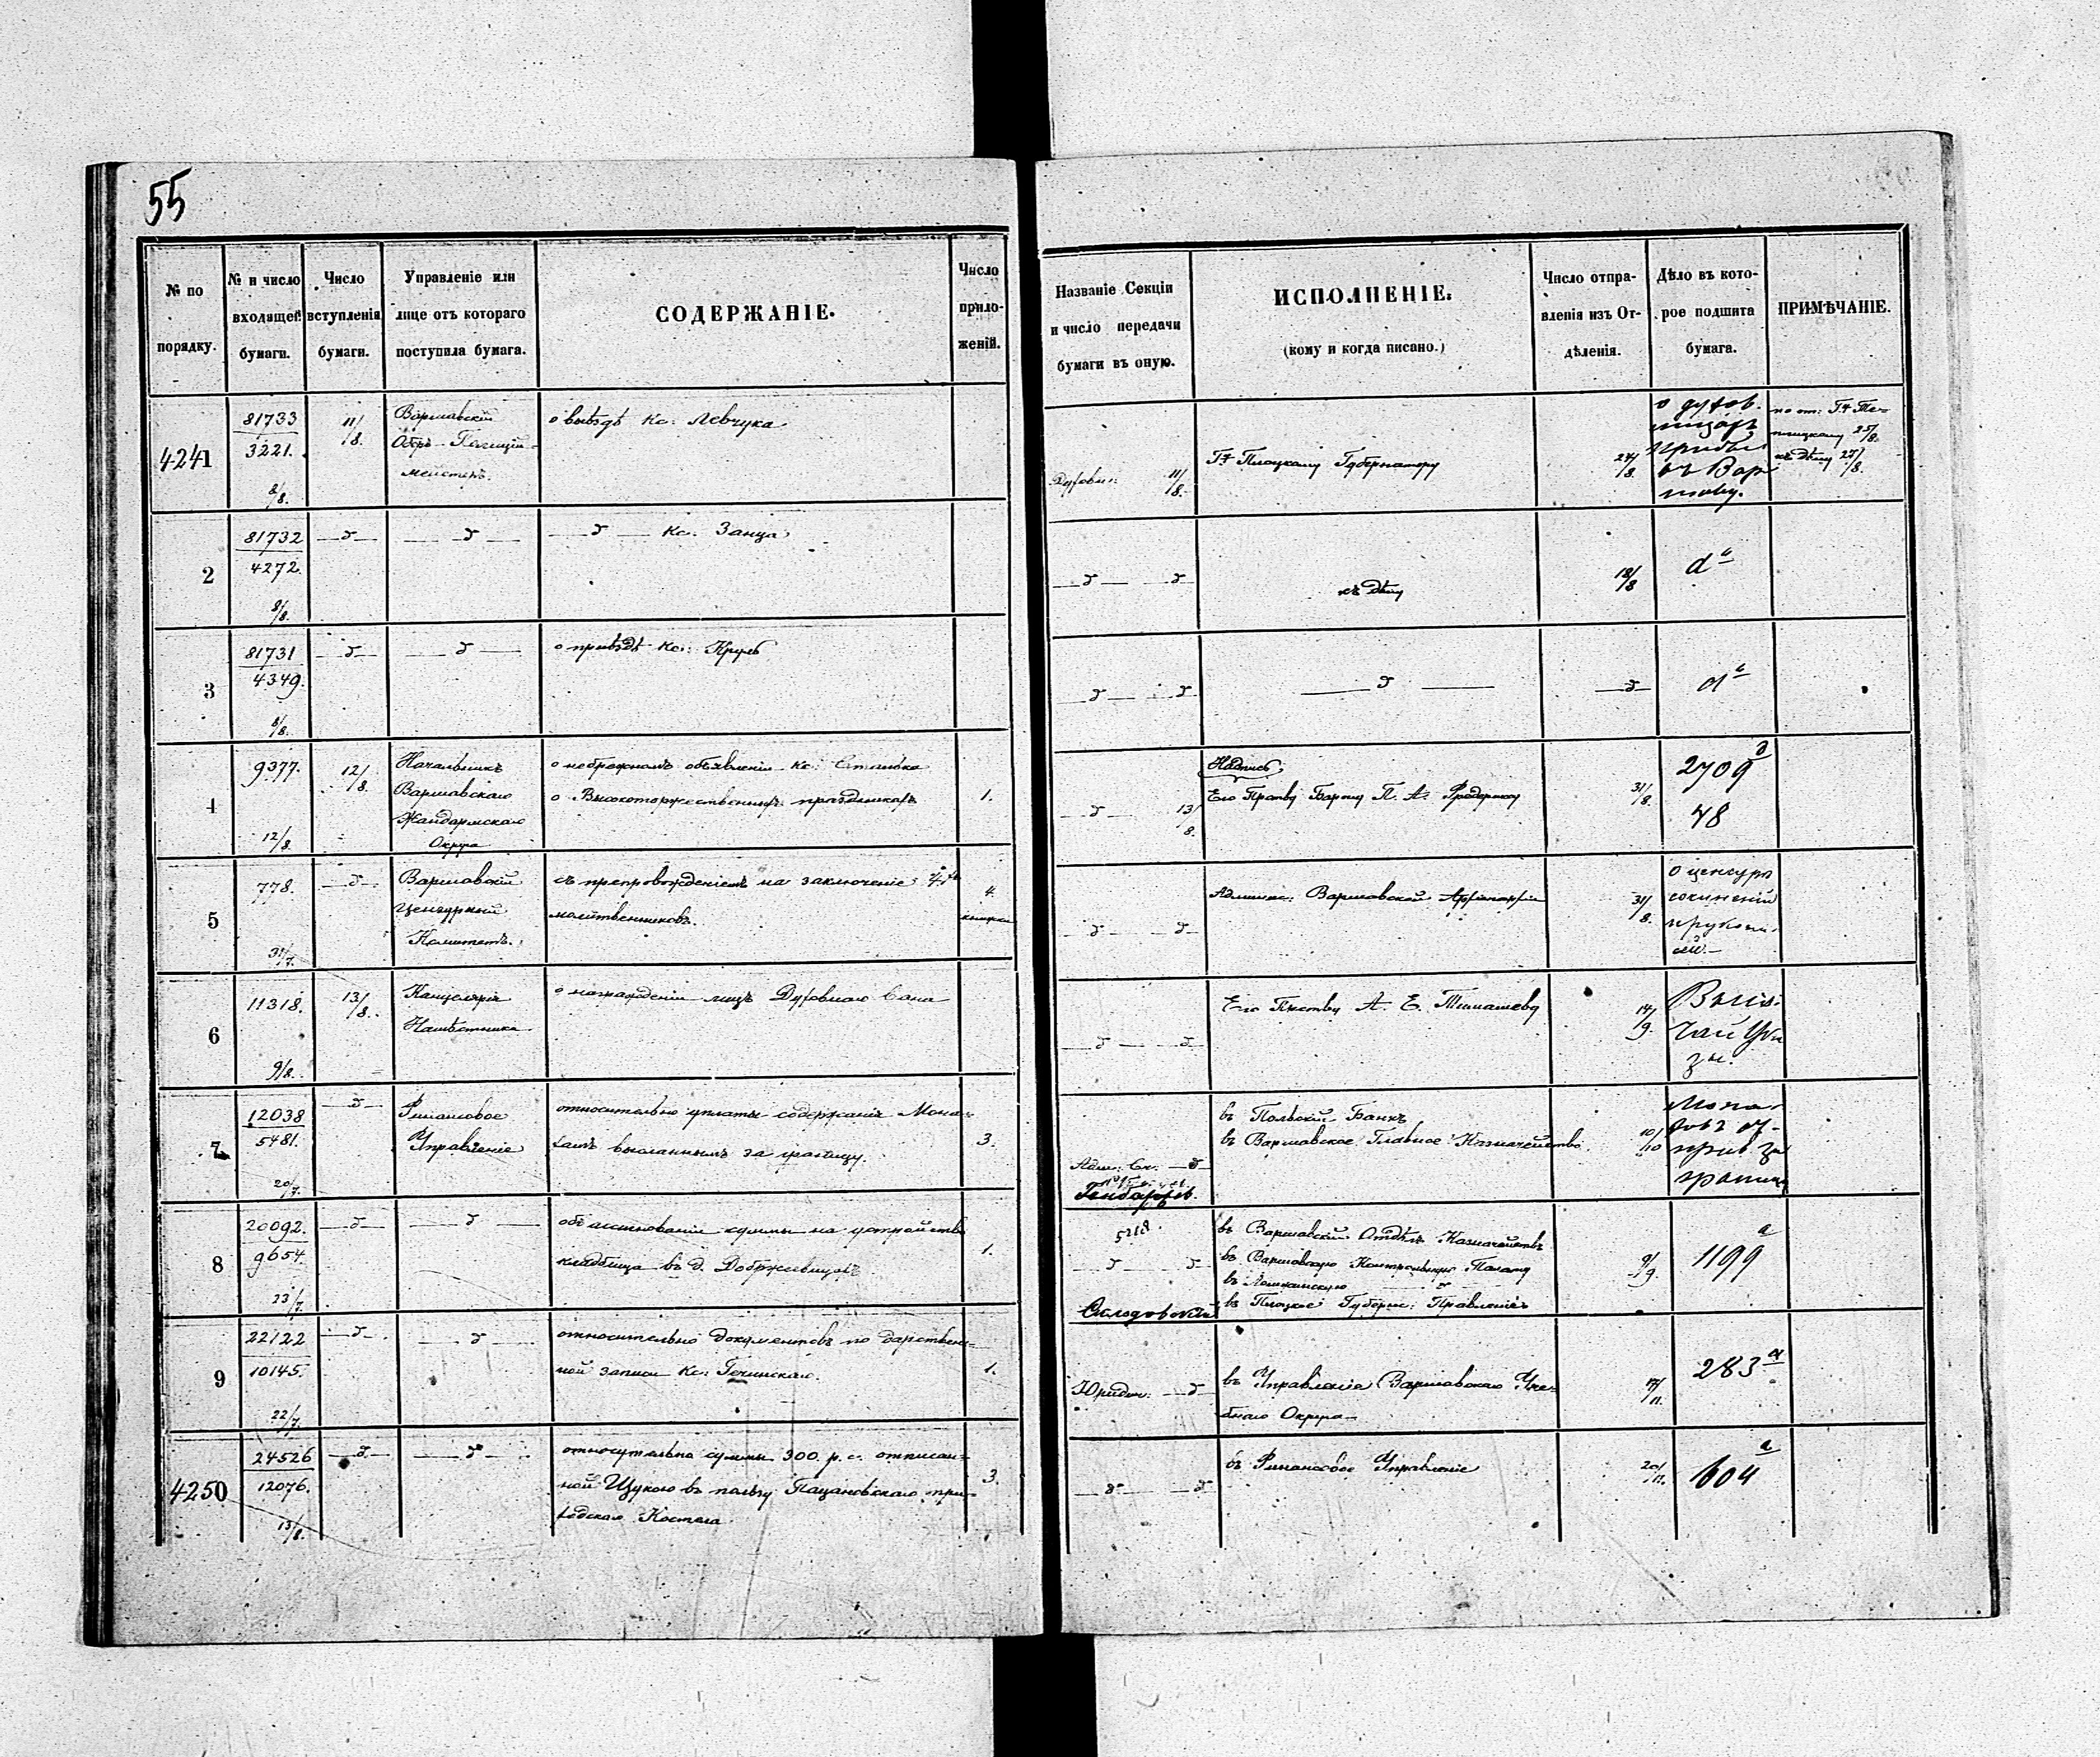 55
№ по порядку.
№ и число входящей бумаги.
Число вступленія бумаги.
Управленіе или лице отъ котораго поступила бумага.
СОДЕРЖАНІЕ.
Число приложеній.
Названіе Секціи и число передачи бумаги въ оную.
ИСПОЛНЕНІЕ.
(кому и когда писано.)
Число отправленія изъ Отдѣленія.
Дѣло въ которое подшита бумага.
ПРИМѢЧАНІЕ.
4241
81733
3221.
8/8.
11/8.
Варшавскій
Оберъ-Полицій-
мейстеръ.
о выѣздѣ Кс: Левчука
Духовн:
11/8.
Плоцкому Губернатору
24/8.
о духов.
въ Вар
шаву.
къ дѣлу
2
81732
4272.
8/8.
— д —
— д —
— д — Кс: Занца
— д — д
къ дѣлу
18/8
d a
3
81731
4349.
8/8.
— д —
— д —
о пріѣздѣ Кс: Круль
д — д
— д —
— д —
d a
4
9377.
12/8
12/8.
Начальникъ
Варшавскаго
Жандармскаго
Округа
о небрежномъ объявленіи Кс:
о Высокоторжественныхъ праздникахъ
1.
— д —
13/8.
Надпись
Его Прству Барону П. А. Фредериксу
31/8.
2709 д
48
5
778.
31/7.
— д —
Варшавскій
Цензурный
Комитетъ.
съ препровожденіемъ на заключеніе 4хъ
молитвенниковъ.
4.
книжки
— д — д
Админис: Варшавской Архіепархіи
31/8.
о цензурѣ
сочиненій
6
11318.
9/8.
13/8.
Канцелярія
Намѣстника
о награжденіи лицъ Духовнаго Сана
— д — д
Его Пкству А. Е. Тимашеву
14/9.
7
12038
5481.
20/7.
— д —
Финансовое
Управленіе
относительно уплаты содержанія Мона-
хамъ высланнымъ за границу.
3.
Адм: Ск: — д
въ Польскій Банкъ
въ Варшавское Главное Казначейство
10/10
Мона-
хов
за
границу
8
20092.
9654
23/7.
— д —
— д —
объ ассигнованіи суммы на устройство
кладбища въ д. Добржевицахъ
1.
5218.
д — д
въ Варшавскій Отдѣлъ Казначейства
въ Варшавскую Контрольную Палату
въ Плоцкое Губерн: Правленіе
9/9.
1199 a
9
22122
10145.
22/7.
— д —
— д
относительно документовъ по дарствен-
ной записи Кс:
1.
Юридич: — д
въ Управленіе Варшавскаго Уче-
бнаго Округа
17/11.
283 a
4250
24526
12076.
13/8.
— д —
— д —
относительно суммы 300. р. с. отписан-
ной Щукою въ пользу Пацановскаго при-
ходскаго Костела
3.
— д — д
въ Финансовое Управленіе
20/11.
604 a